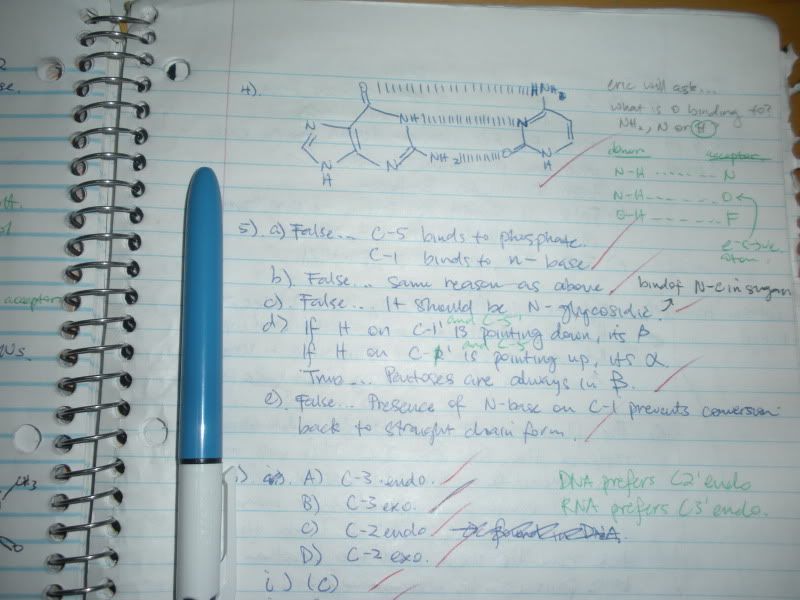 se.
acceptor
Ws.
CH3
4).
O
HNH2
N
NH
N
N
H
N
NH2
O
N
H
eric will ask...
what is O binding to?
NH2, N or H
donor acceptor
N-H ...... N
N-H - - - - O
O-H - - - - F
e-s-ve
atom.
5). a) False... C-5 binds to phosphate.
C-1 binds to n-base.
b). False... same reason as above. N-C in sugar
c). False... It should be N-glycosidic.
and C-5'
d) If H on C-1' is pointing down, its β
and C-5
If H on C-1' is pointing up, its α.
True... Pentoses are always in β.
e). False... Presence of N-base on C-1 prevents conversion
back to straight chain form.
A) C-3 endo.
B) C-3 exo.
C) C-2 endo
D) C-2 exo.
i) (C)
DNA prefers C2' endo
RNA prefers C3' endo.